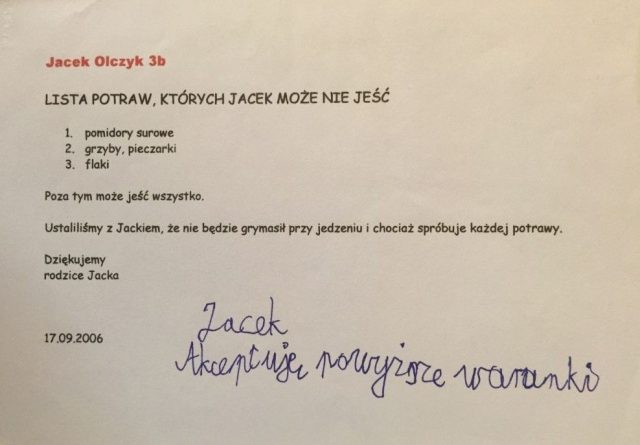 Jacek Olczyk 3b
LISTA POTRAW, KTÓRYCH JACEK MOŻE NIE JEŚĆ
1. pomidory surowe
2. grzyby, pieczarki
3. flaki
Poza tym może jeść wszystko.
Ustaliliśmy z Jackiem, że nie będzie grymasił przy jedzeniu i chociaż spróbuje każdej potrawy.
Dziękujemy
rodzice Jacka
17.09.2006
Jacek
Akceptuję powyższe warunki